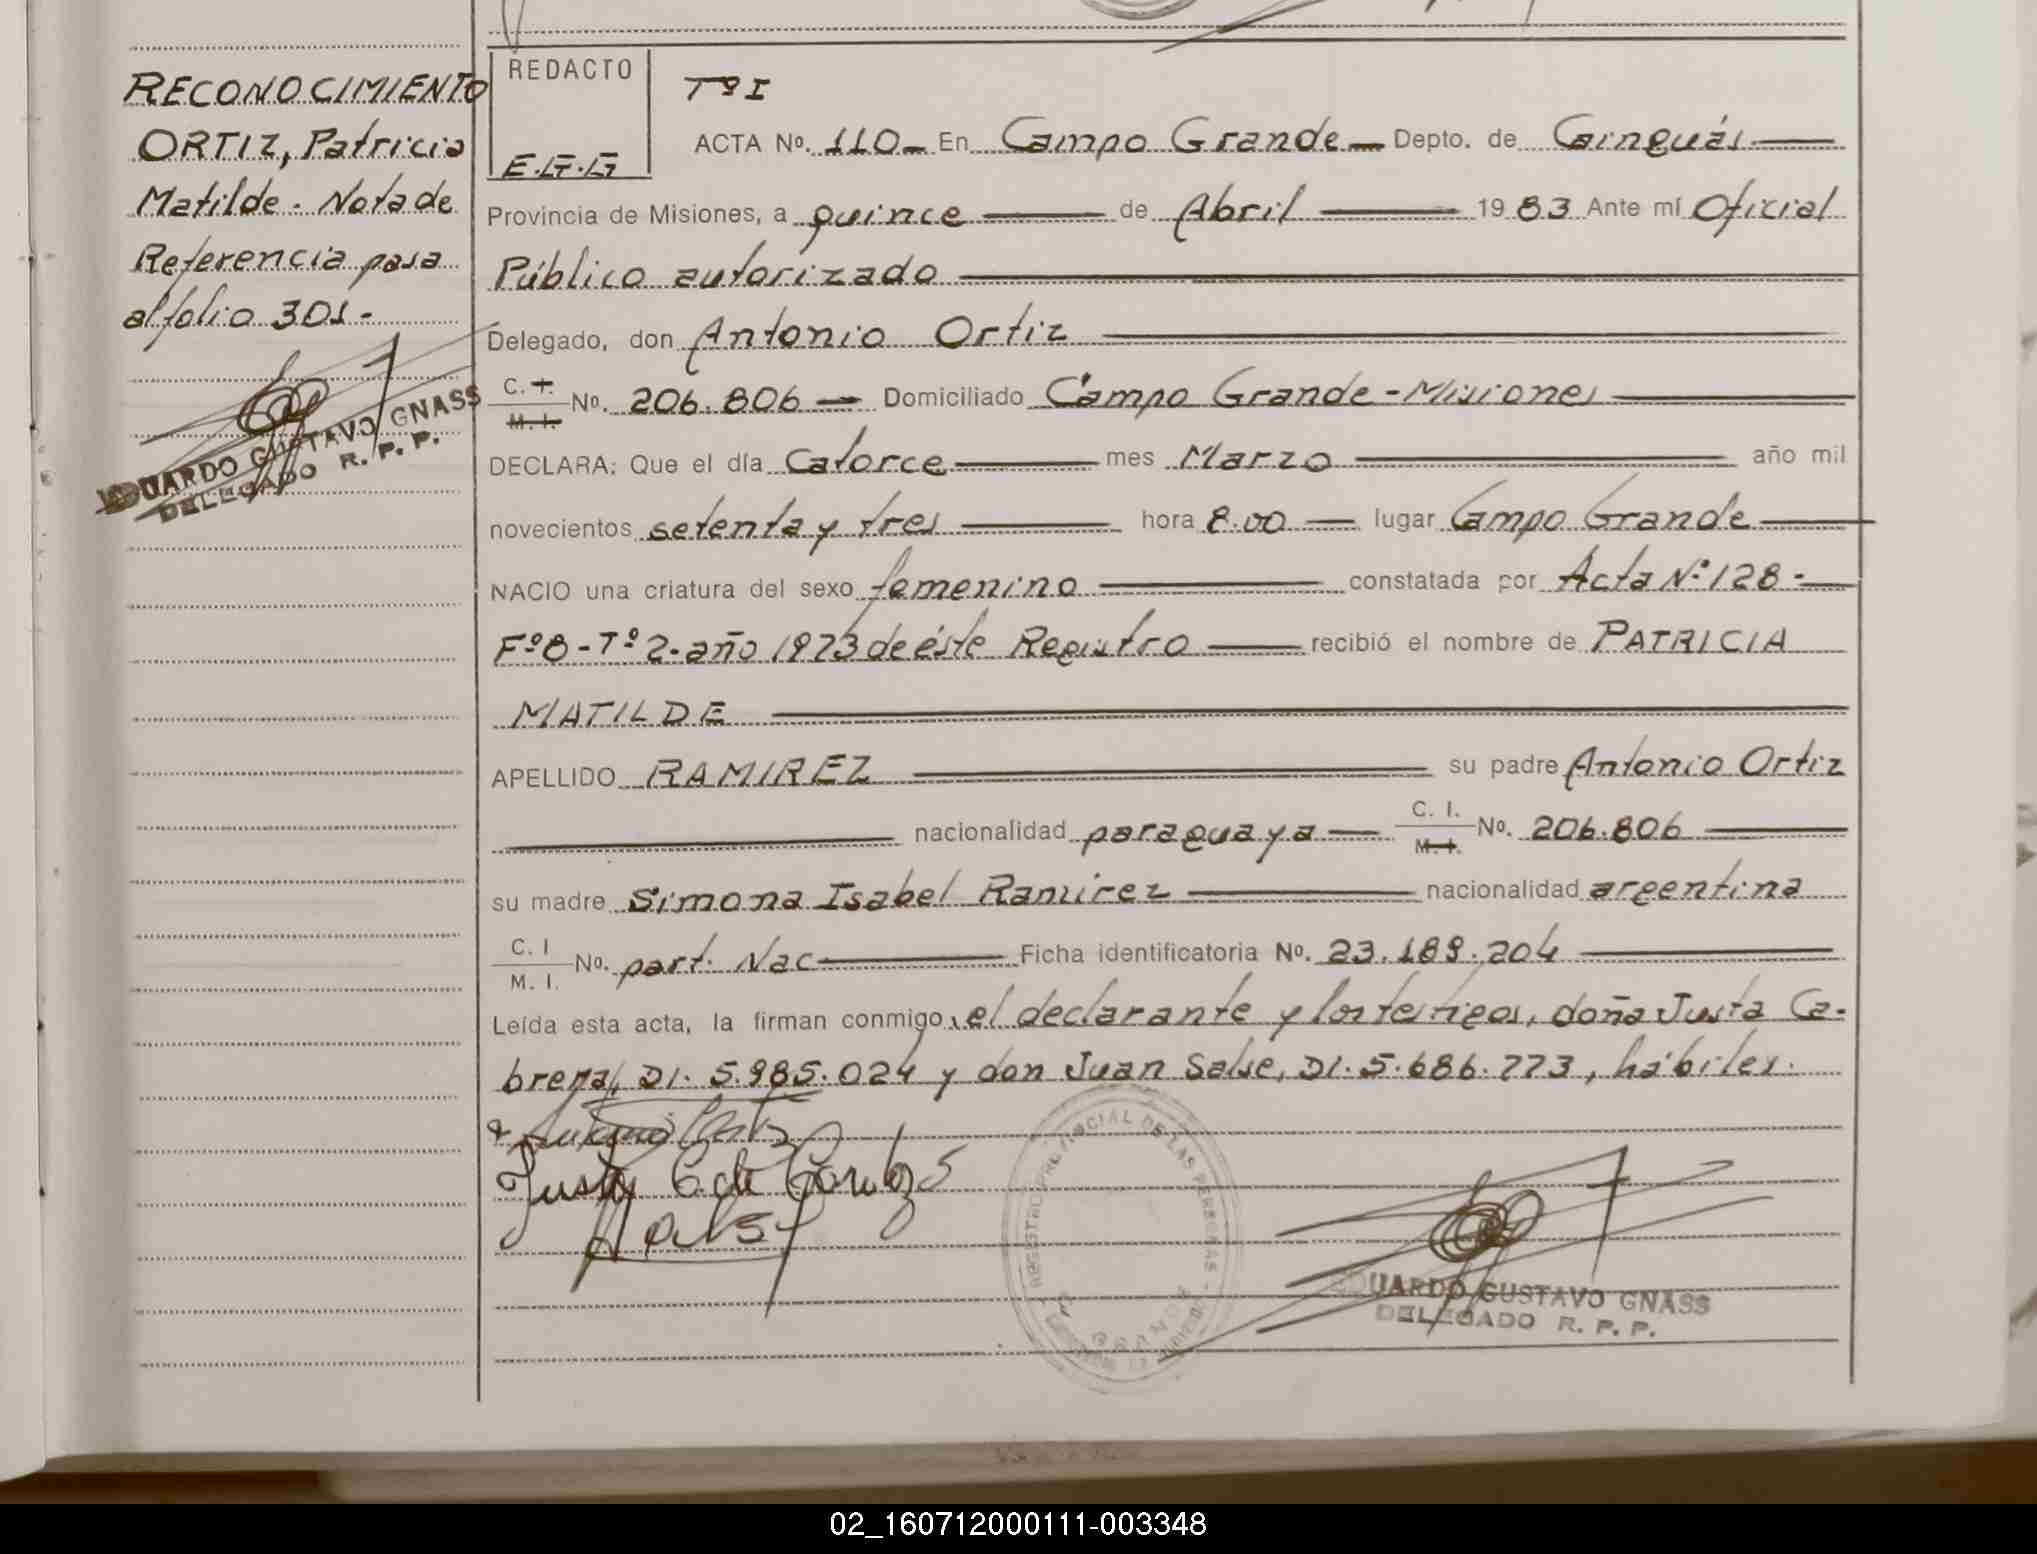 RECONOCIMIENTO
ORTIZ, Patricia
Matilde. Nota de
Referencia pasa
al folio 301-
EDUARDO GUSTAVO GNASS
DELEGADO R. P. P.
REDACTO
E.G.G
Tº I
ACTA Nº. 110- En Campo Grande- Depto. de Cainguás
Provincia de Misiones, a quince de Abril 1983 Ante mí Oficial
Público autorizado
Delegado, don Antonio Ortiz
C. I. M. I. Nº. 206.806 Domiciliado Campo Grande-Misiones
DECLARA: Que el día Catorce mes Marzo año mil
novecientos setenta y tres hora 8.00 lugar Campo Grande
NACIO una criatura del sexo femenino constatada por Acta Nº 128-
Fº8-Tº2-año 1973 de éste Registro recibió el nombre de PATRICIA
MATILDE
APELLIDO RAMIREZ su padre Antonio Ortiz
nacionalidad paraguaya C. I. M. I. Nº. 206.806
su madre Simona Isabel Ramirez nacionalidad argentina
C. I M. I. Nº. part. Nac Ficha identificatoria Nº. 23.189.204
Leída esta acta, la firman conmigo, el declarante y los testigos, doña Justa Ca-
brera, DI. 5.985.024 y don Juan Salse, DI. 5.686.773, hábiles.
Justa C de
REGISTRO PROVINCIAL DE LAS PERSONAS
GRANDE
EDUARDO GUSTAVO GNASS
DELEGADO R. P. P.
02_160712000111-003348